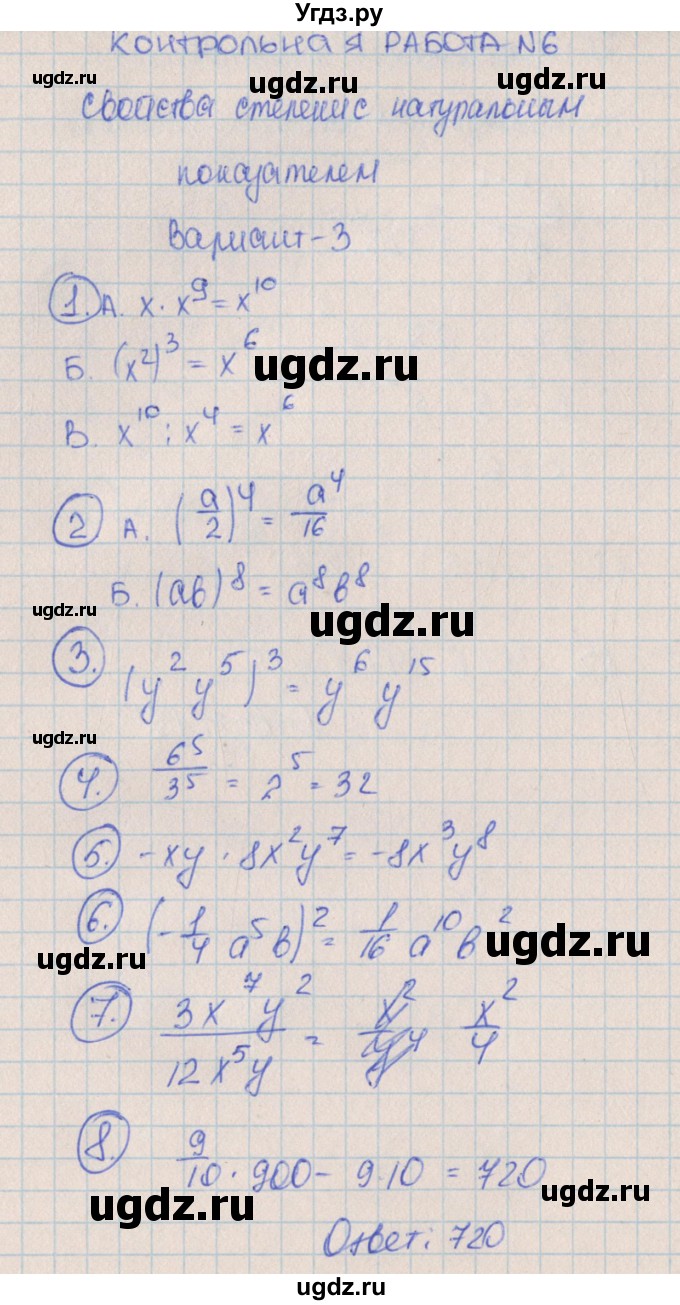 Угдз.ру
КОНТРОЛЬНАЯ РАБОТА №6
ugdz.ru ugdz.ru
свойства степени с натуральным
показателем
Вариант-3
1. А. x · x⁹ = x¹⁰
Б. (x²)³ = x⁶
ugdz.ru
В. x¹⁰ : x⁴ = x⁶
2 А. (a/2)⁴ = a⁴/16
Б. (ab)⁸ = a⁸b⁸
ugdz.ru ugdz.ru
3. (y² y⁵)³ = y⁶ y¹⁵
ugdz.ru
4. 6⁵/3⁵ = 2⁵ = 32
5. -xy · 8x²y⁷ = -8x³y⁸
6. (-1/4 a⁵b)² = 1/16 a¹⁰b²
ugdz.ru ugdz.ru
7. 3x⁷y²/12x⁵y = x²/4
8. 9/10 · 900 - 9·10 = 720
ugdz.ru ugdz.ru
Ответ: 720
ugdz.ru